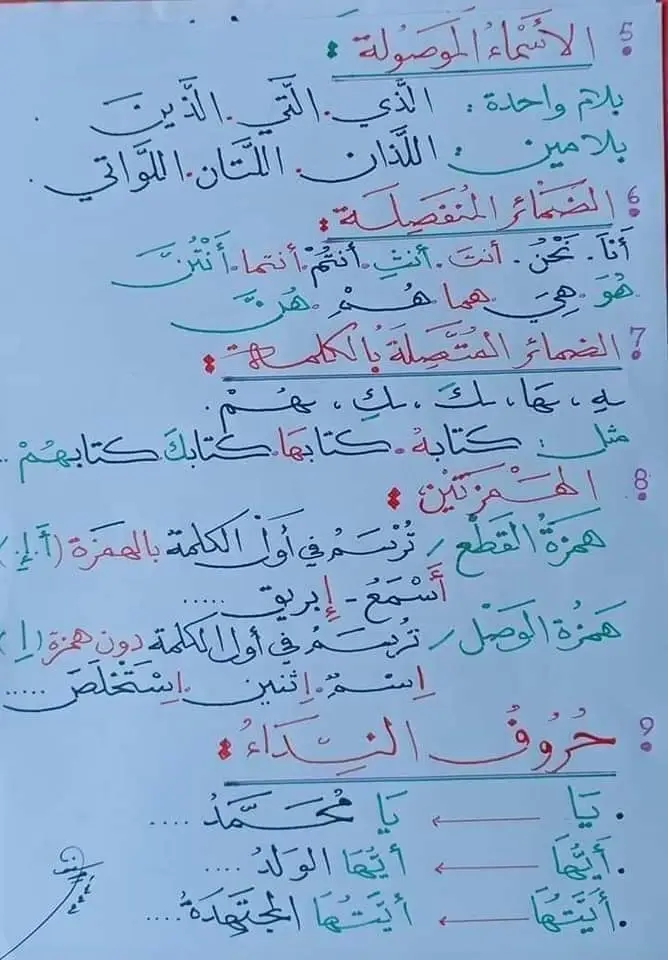 5 الأَسْمَاءُ المَوْصُولَة :
بلام واحدة : الَّذي . الَّتي . الَّذِينَ .
بلامين : اللَّذَان . اللَّتَان . اللَّوَاتي .
6 الضَمَائر المُنْفَصِلَة :
أَنَا . نَحْنُ . أنتَ . أنتِ . أنتُمْ . أنتما . أَنْتُنَّ
هُوَ . هِيَ . هما . هُمْ . هُنَّ
7 الضمائر المُتَّصِلَة بالكلمة :
ـهِ ، ـهَا ، ـكَ ، ـكِ ، ـهُمْ .
مثل : كتابهُ . كتابهَا . كتابكَ . كتابهُمْ ..
8 الهَمْزتَيْن :
همزَةُ القَطْع / تُرْسَمُ في أوَل الكلمة بالهمزة ( أ . إ . )
أَسْمَعُ - إبريق .....
هَمزة الوَصْل / تُرسَمُ في أول الكلمة دون همزة ( ا )
اِسْمُ . اِثنين . اِسْتَخْلَصَ .....
9 حُرُوفُ النِدَاءُ :
. يَا ← يَا مُحَمَّدُ ....
. أَيُّهَا ← أيُّهَا الوَلَدُ ....
. أَيَّتُهَا ← أيَّتُهَا المجتَهِدَةُ ....